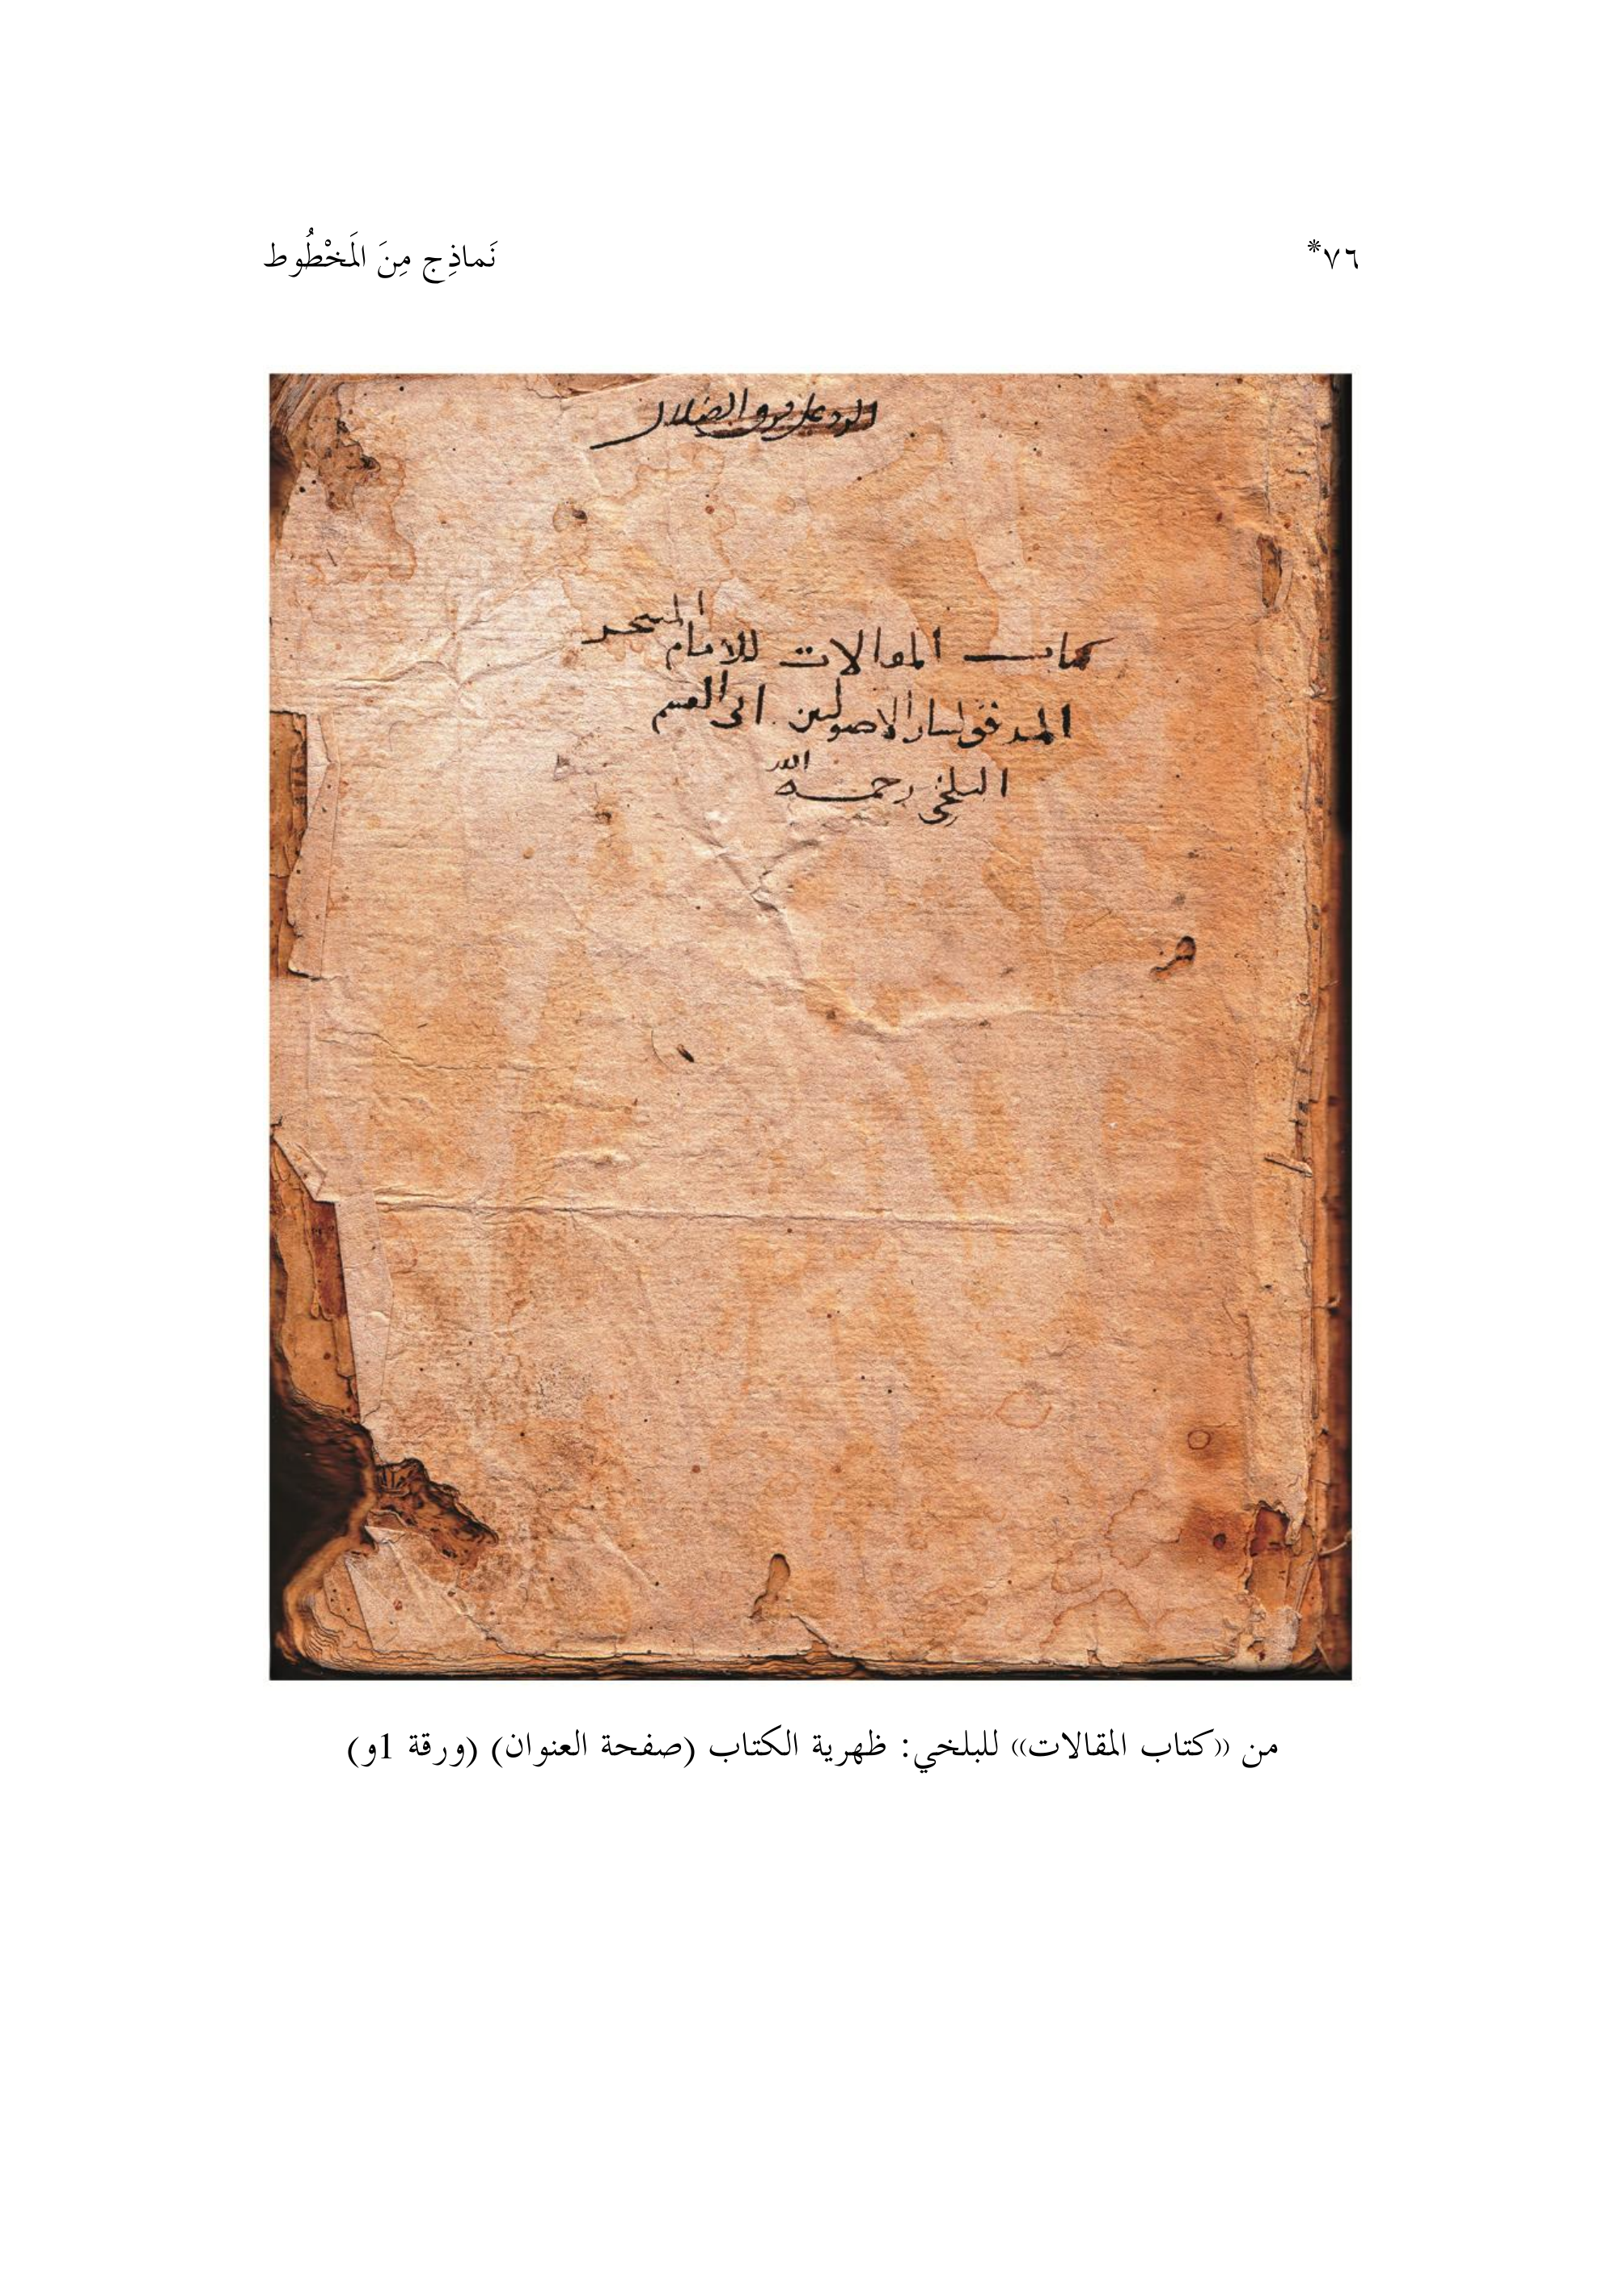 ٧٦*
نَماذِج مِنَ المَخْطُوط
الرد على فرق الضلال
كتاب المقالات للامام
المدقق لسان الاصوليين ابى القسم
البلخي رحمه الله
من «كتاب المقالات» للبلخي: ظهرية الكتاب (صفحة العنوان) (ورقة 1و)